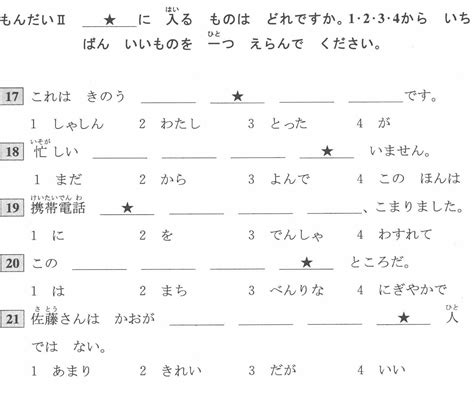 もんだいⅡ ＿＿★＿＿に 入(はい)る ものは どれですか。1・2・3・4から いち
ばん いいものを 一(ひと)つ えらんで ください。
17 これは きのう ＿＿＿ ＿＿＿ ＿★＿ ＿＿＿です。
1 しゃしん 2 わたし 3 とった 4 が
18 忙(いそが)しい ＿＿＿ ＿＿＿ ＿＿＿ ＿★＿ いません。
1 まだ 2 から 3 よんで 4 この ほんは
19 携帯電話(けいたいでんわ) ＿★＿ ＿＿＿ ＿＿＿ ＿＿＿、こまりました。
1 に 2 を 3 でんしゃ 4 わすれて
20 この ＿＿＿ ＿＿＿ ＿＿＿ ＿★＿ ところだ。
1 は 2 まち 3 べんりな 4 にぎやかで
21 佐藤(さとう)さんは かおが ＿＿＿ ＿＿＿ ＿＿＿ ＿★＿ 人(ひと)
では ない。
1 あまり 2 きれい 3 だが 4 いい